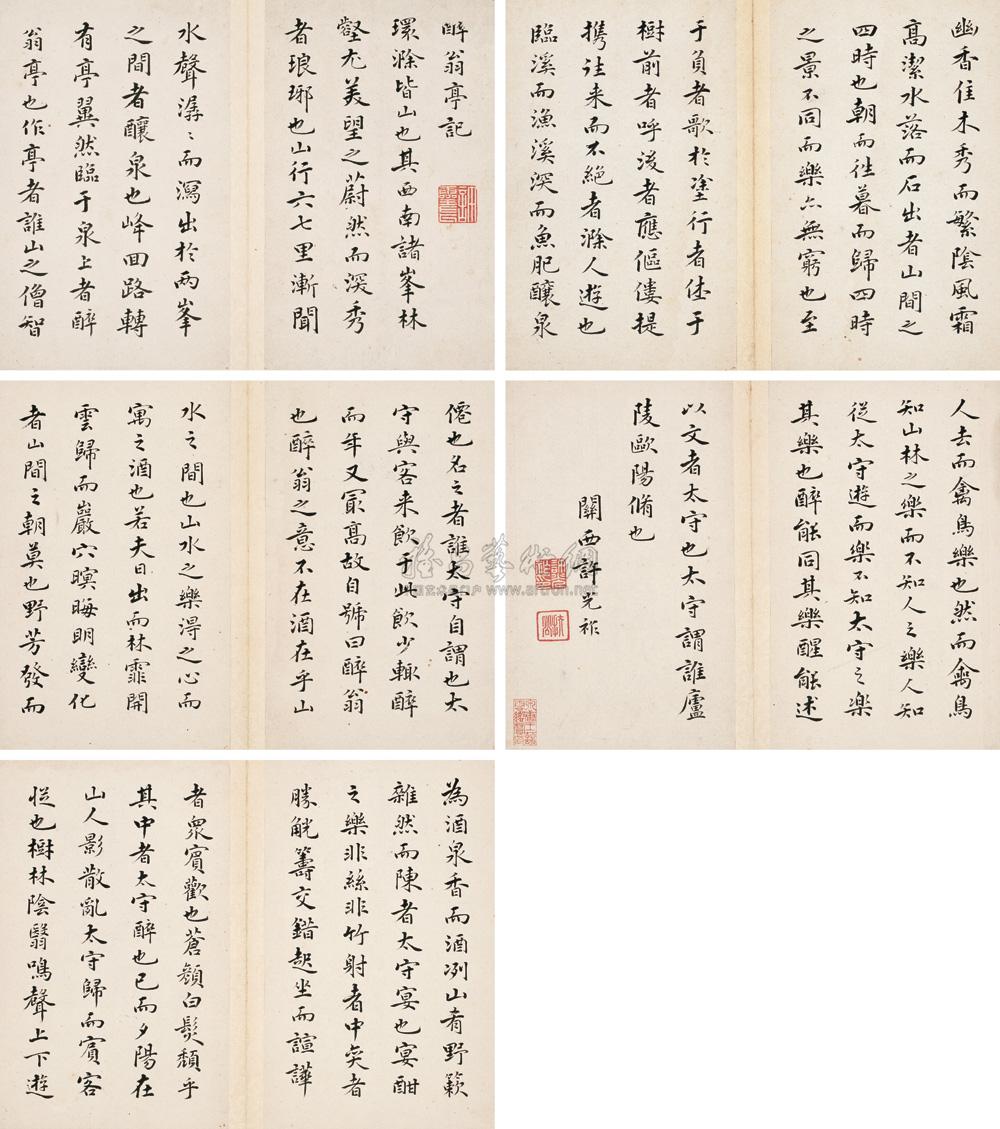 醉翁亭記
環滁皆山也其西南諸峯林
壑尤美望之蔚然而深秀
者琅琊也山行六七里漸聞
水聲潺〻而瀉出於兩峯
之間者釀泉也峰回路轉
有亭翼然臨于泉上者醉
翁亭也作亭者誰山之僧智
僊也名之者誰太守自謂也太
守與客来飲于此飲少輒醉
而年又冣高故自號曰醉翁
也醉翁之意不在酒在乎山
水之間也山水之樂得之心而
寓之酒也若夫日出而林霏開
雲歸而巖穴暝晦明變化
者山間之朝莫也野芳發而
幽香佳木秀而繁陰風霜
高潔水落而石出者山間之
四時也朝而徃暮而歸四時
之景不同而樂亦無窮也至
于負者歌於塗行者休于
樹前者呼後者應傴僂提
携往来而不絶者滁人遊也
臨溪而漁溪深而魚肥釀泉
為酒泉香而酒冽山肴野蔌
雜然而陳者太守宴也宴酣
之樂非絲非竹射者中奕者
勝觥籌交錯起坐而諠譁
者衆賓歡也蒼顏白髮頹乎
其中者太守醉也已而夕陽在
山人影散亂太守歸而賓客
從也樹林陰翳鳴聲上下遊
人去而禽鳥樂也然而禽鳥
知山林之樂而不知人之樂人知
從太守遊而樂不知太守之樂
其樂也醉能同其樂醒能述
以文者太守也太守謂誰廬
陵歐陽脩也
關西許光祚
www.artron.net